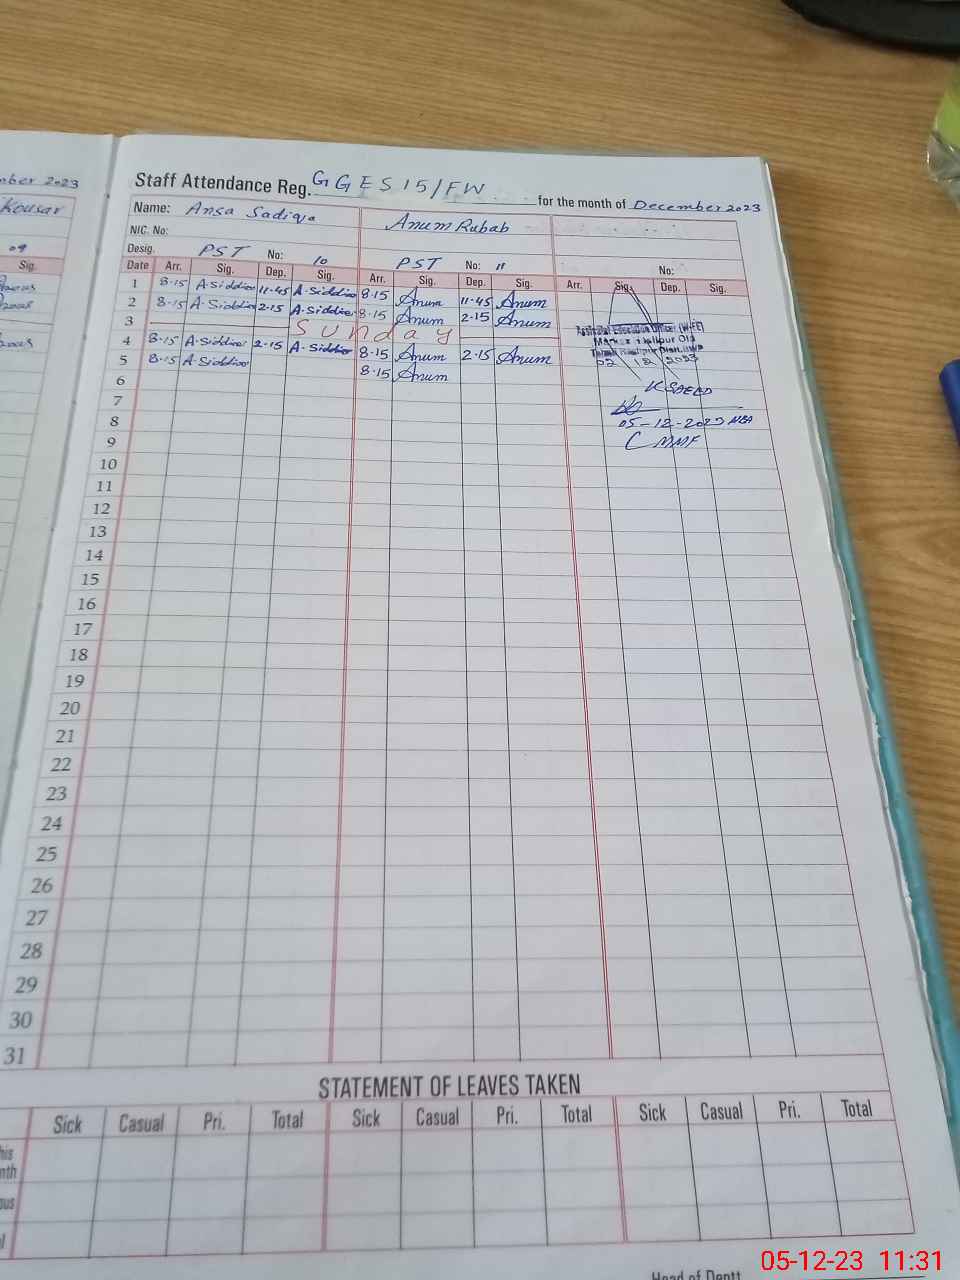 mber 2023
Kousar
09
Sig.
Staff Attendance Reg. GGES 15/FW for the month of December 2023
Name: Ansa Sadiqa Anum Rubab
NIC. No:
Desig. PST No: 10 PST No: 11 No:
Date Arr. Sig. Dep. Sig. Arr. Sig. Dep. Sig. Arr. Sig. Dep. Sig.
1 8-15 A-Siddiqa 11-45 A-Siddiqa 8-15 Anum 11-45 Anum
2 8-15 A-Siddiqa 2-15 A-Siddiqa 8-15 Anum 2-15 Anum
3 Sunday
4 8-15 A-Siddiqa 2-15 A-Siddiqa 8-15 Anum 2-15 Anum
5 8-15 A-Siddiqa 8-15 Anum
Education Officer (W-EE)
Markaz Old
02 12 2023
K SAEED
05-12-2023
6
7
8
9
10
11
12
13
14
15
16
17
18
19
20
21
22
23
24
25
26
27
28
29
30
31
STATEMENT OF LEAVES TAKEN
Sick Casual Pri. Total Sick Casual Pri. Total Sick Casual Pri. Total
his
nth
ous
l
Head of Deptt
05-12-23 11:31